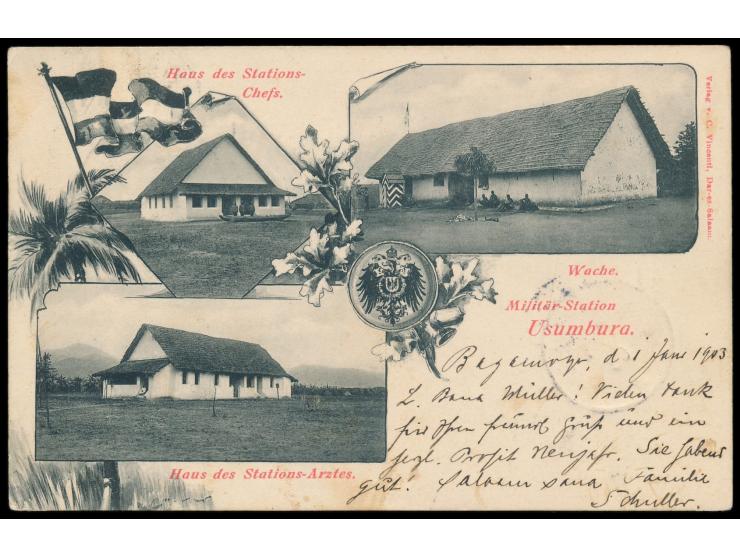 Haus des Stations-
Chefs.
Verlag v. C. Vincenti, Dar-es-Salaam.
Wache.
Militär-Station
Usumbura.
Haus des Stations-Arztes.
Bagamoyo, d 1 Janr 1903
L. Bana Müller! Vielen Dank
für Ihren Gruß und ein
Prosit Neujahr. Sie haben
gut! Salaam sana Familie
Schuller.